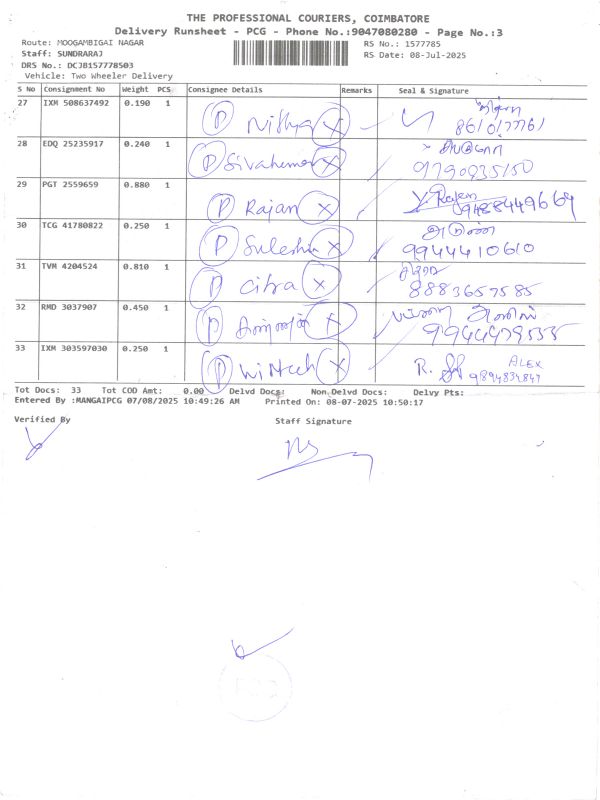 THE PROFESSIONAL COURIERS, COIMBATORE
Delivery Runsheet - PCG - Phone No.:9047080280 - Page No.:3
Route: MOOGAMBIGAI NAGAR RS No.: 1577785
Staff: SUNDRARAJ RS Date: 08-Jul-2025
DRS No.: DCJB157778503
Vehicle: Two Wheeler Delivery
S No Consignment No Weight PCS Consignee Details Remarks Seal & Signature
27 IXM 508637492 0.190 1 P Nithya X
28 EDQ 25235917 0.240 1 P X 9790835150
29 PGT 2559659 0.880 1 P Rajan X Y. Rajan 9488449664
30 TCG 41780822 0.250 1 P X 9944410610
31 TVM 4204524 0.810 1 P Citra X 8883657585
32 RMD 3037907 0.450 1 P X
33 IXM 303597030 0.250 1 P X R. ALEX 9894834847
Tot Docs: 33 Tot COD Amt: 0.00 Delvd Docs: Non.Delvd Docs: Delvy Pts:
Entered By :MANGAIPCG 07/08/2025 10:49:26 AM Printed On: 08-07-2025 10:50:17
Verified By Staff Signature